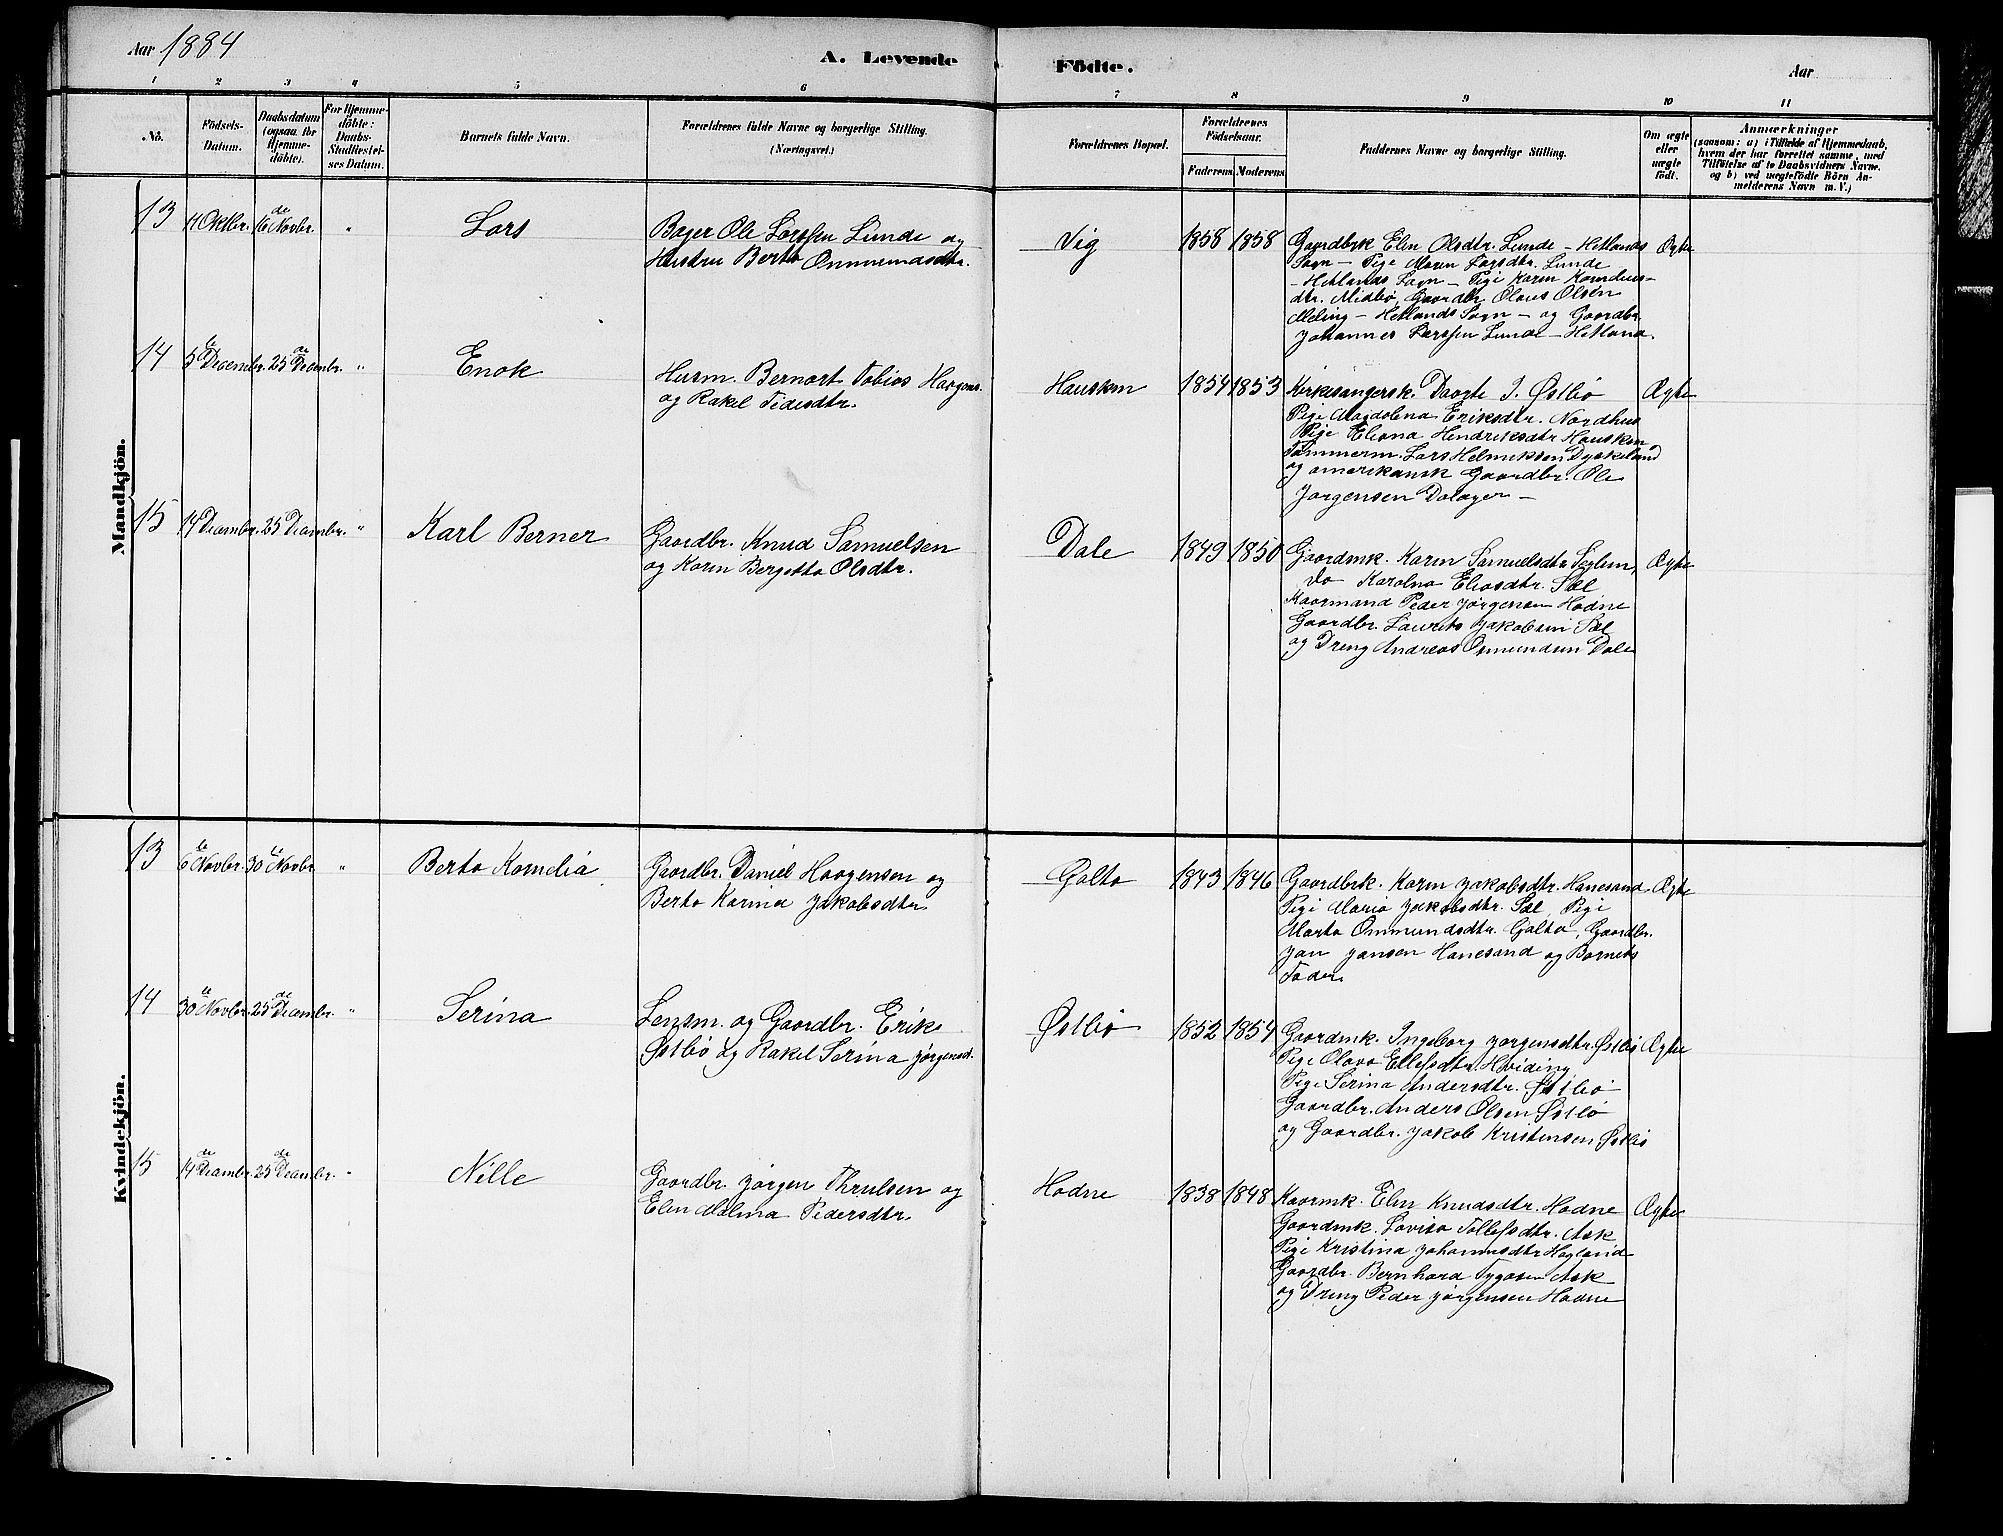 Aar 1884
A. Levende Födte.
Aar
1 2 3 4 5 6 7 8 9 10 11
No.
Födsels-Datum.
Daabsdatum (ogsaa for Hjemme-döbte).
For Hjemme-döbte: Daabs-Stadfæstel-ses Datum.
Barnets fulde Navn.
Forældrenes fulde Navne og borgerlige Stilling. (Næringsvei.)
Forældrenes Bopæl.
Forældrenes Födselsaar.
Faderens Moderens
Faddernes Navne og borgerlige Stilling.
Om ægte eller uægte födt.
Anmærkninger
(saasom: a) i Tilfælde af Hjemmedaab,
hvem der har forrettet samme, med
Tilföielse af to Daabsvidners Navne,
og b) ved uægtefödte Börn An-
melderens Navn m. V.)
Mandkjön.
13 4 Oktbr. 16de Novbr. "
Lars
Bager Ole Larssen Lunde og
Hustru Berta Ommundsdtr.
Vig 1858 1858
Gaardbrk Elen Olsdtr. Lunde - Hetlands
Sogn - Pige Maren Larsdtr. Lunde
- Hetlands Sogn - Pige Karen Kornelius-
dtr. Midbø, Gaardbr. Olaus Olsen
Meling - Hetlands Sogn - og Gaardbr.
Johannes Larssen Lunde - Hetland.
Ægte
14 5te Decembr. 25de Decembr. "
Enok
Husm. Bernart Tobias Haagens.
og Rakel Pedersdtr.
Hausken 1854 1853
Kirkesangersk. Daarte J. Østbø
Pige Magdalena Eriksdtr. Nordhus
Pige Eliana Hendriksdtr Hausken
Tømmerm. Lars Helmiksen Dyskeland
og amerikansk Gaardbr. Ole
Jørgensen Dalager -
Ægte
15 14 Decembr. 25 Decembr. "
Karl Berner
Gaardbr. Knud Samuelsen
og Karen Bergitta Olsdtr.
Dale 1849 1850
Gaardmk. Karen Samuelsdtr Seglem,
do Karolna Eliasdtr. Sæl
Kaarmand Peder Jørgensen Hodne
Gaardbr. Laurits Jakobsen Sæl
og Dreng Andreas Osmundsen Dale
Ægte
Kvindekjön.
13 6te Novbr. 30te Novbr. "
Berta Kornelia
Gaardbr. Daniel Haagensen og
Berta Karina Jakobsdtr
Galta 1843 1846
Gaardbrk. Karen Jakobsdtr. Hanesand.
Pige Maria Jakobsdtr. Sæl, Pige
Marta Ommundsdtr. Galta, Gaardbr.
Jan Jansen Hanesand og Barnets
Fader
Ægte
14 30te Novbr. 25de Decembr. "
Serina
Lensm. og Gaardbr. Erik
Østbø og Rakel Serina Jørgensd.
Østbø 1852 1854
Gaardmk. Ingeborg Jørgensdtr. Østbø
Pige Olava Ellefsdtr. Hviding
Pige Serina Andersdtr. Østbø
Gaardbr. Anders Olsen Østbø
og Gaardbr. Jakob Kristensen Østbø
Ægte
15 14de Decembr. 25de Decembr. "
Nille
Gaardbr. Jørgen Thrulsen og
Elen Malena Pedersdtr.
Hodne 1838 1848
Kaarmk. Elen Knudsdtr. Hodne
Gaardmk. Lovisa Tollefsdtr. Ask
Pige Kristina Johannesdtr Hagland
Gaardbr. Bernhard Tygesen Ask
og Dreng Peder Jørgensen Hodne
Ægte